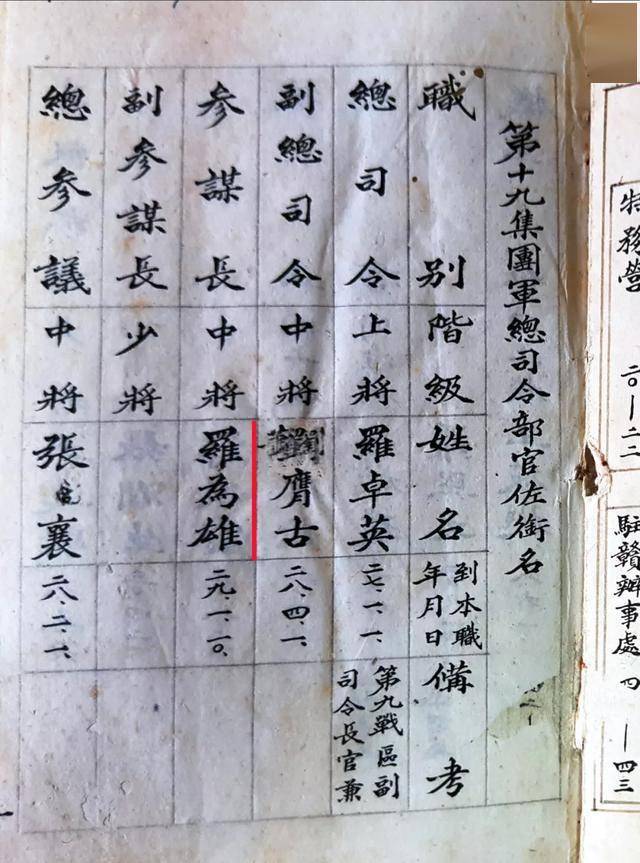 特務營 二〇—二二
駐贛辦事處 四 —四三
第十九集團軍總司令部官佐銜名
職別 階級 姓名 到本職年月日 備考
總司令 上將 羅卓英 二七、一、一、 第九戰區副司令長官兼
副總司令 中將 膺古 二八、四、一、
參謀長 中將 羅為雄 二九、一、一〇、
副參謀長 少將
總參議 中將 張襄 二八、二、一、